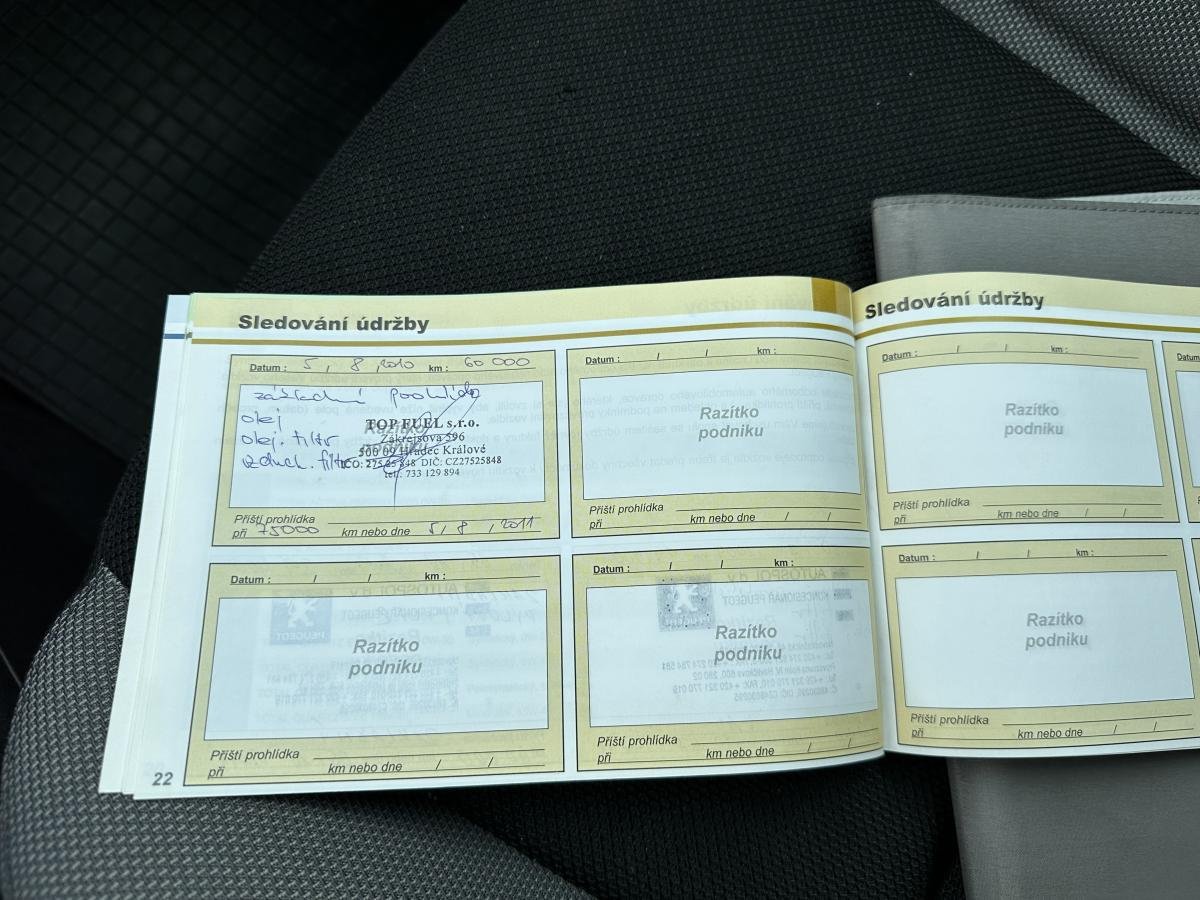 Sledování údržby
Datum : 5 / 8 / 2010 km : 60 000
základní prohlídka
olej
olej. filtr
vzduch. filtr
Razítko
podniku
TOP FUEL s.r.o.
Zákrejsova 596
500 09 Hradec Králové
IČO: 275 25 848 DIČ: CZ27525848
tel.: 733 129 894
Příští prohlídka
při 75000 km nebo dne 5 / 8 / 2011
Datum : / / km :
Razítko
podniku
Příští prohlídka
při km nebo dne / /
Datum : / / km :
Razítko
podniku
Příští prohlídka
při km nebo dne / /
Datum : / / km :
Razítko
podniku
Příští prohlídka
při km nebo dne / /
22
Sledování údržby
Datum : / / km :
Razítko
podniku
Příští prohlídka
při km nebo dne / /
Datum : / / km :
Razítko
podniku
Příští prohlídka
při km nebo dne / /